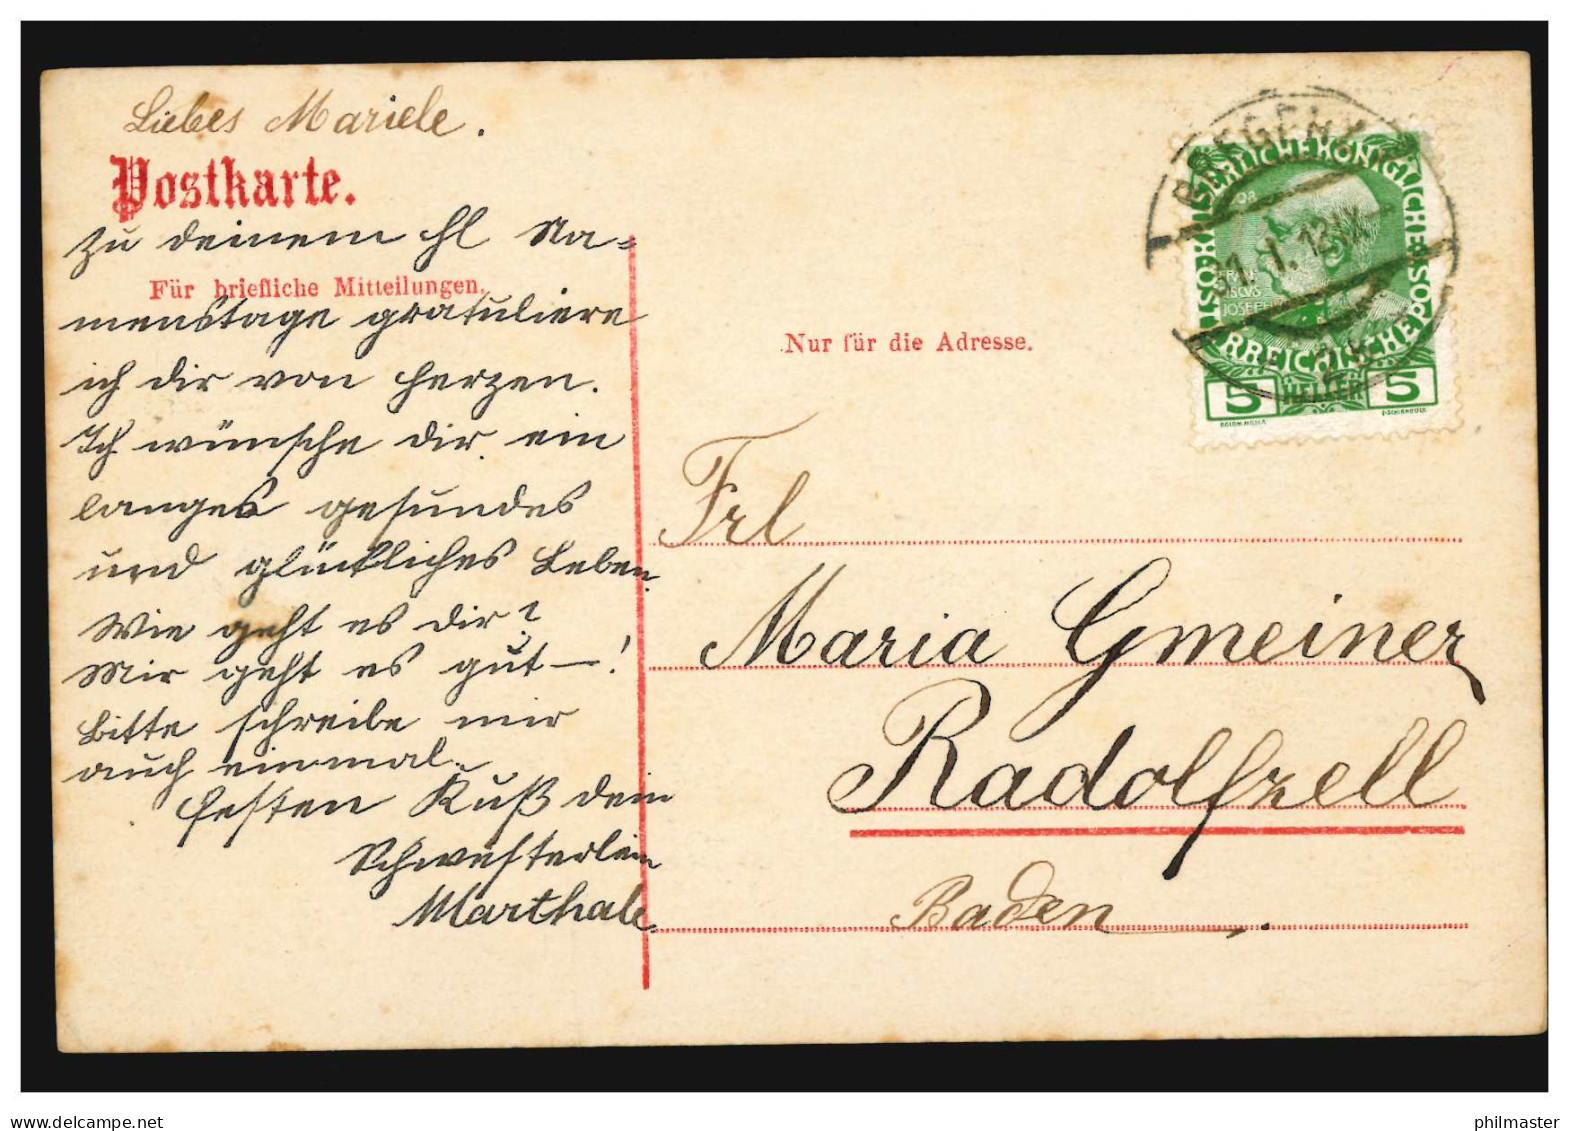 Liebes Mariele.
Postkarte.
zu deinem hl Na=
Für briefliche Mitteilungen.
menstage gratuliere
ich dir von Herzen.
Ich wünsche dir ein
langes gesundes
und glückliches Leben.
Wie geht es dir?
Mir geht es gut—!
Bitte schreibe mir
auch einmal.
festen Kuß dein
Schwesterlein
Marthale.
BREGENZ
31. I. 13
KAISERLICHE KÖNIGLICHE
ÖSTERREICHISCHE POST
FRAN
ISCVS
JOSEPH
5 HELLER 5
KOLOM. MOSER
F. SCHIRNBÖCK
Nur für die Adresse.
Frl
Maria Gmeiner
Radolfzell
Baden.
DelCampe.net
philmaster